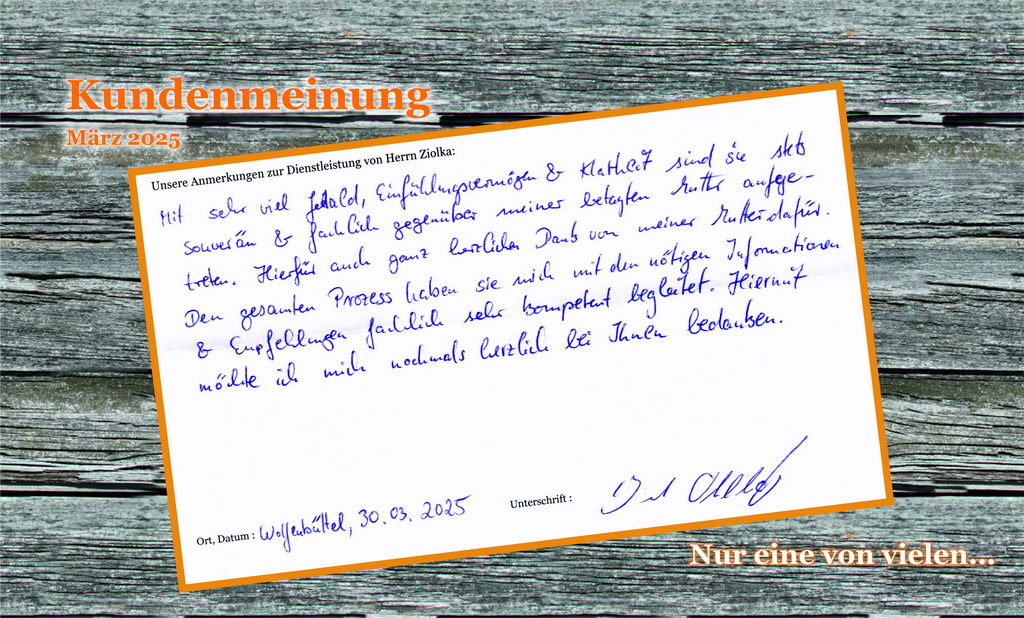 Kundenmeinung
März 2025
Unsere Anmerkungen zur Dienstleistung von Herrn Ziolka:
Mit sehr viel Geduld, Einfühlungsvermögen & Klarheit sind sie stets
souverän & fachlich gegenüber meiner betagten Mutter aufge-
treten. Hierfür auch ganz herzlichen Dank von meiner Mutter dafür.
Den gesamten Prozess haben sie mich mit den nötigen Informationen
& Empfehlungen fachlich sehr kompetent begleitet. Hiermit
möchte ich mich nochmals herzlich bei Ihnen bedanken.
Ort, Datum : Wolfenbüttel, 30.03.2025
Unterschrift :
Nur eine von vielen...